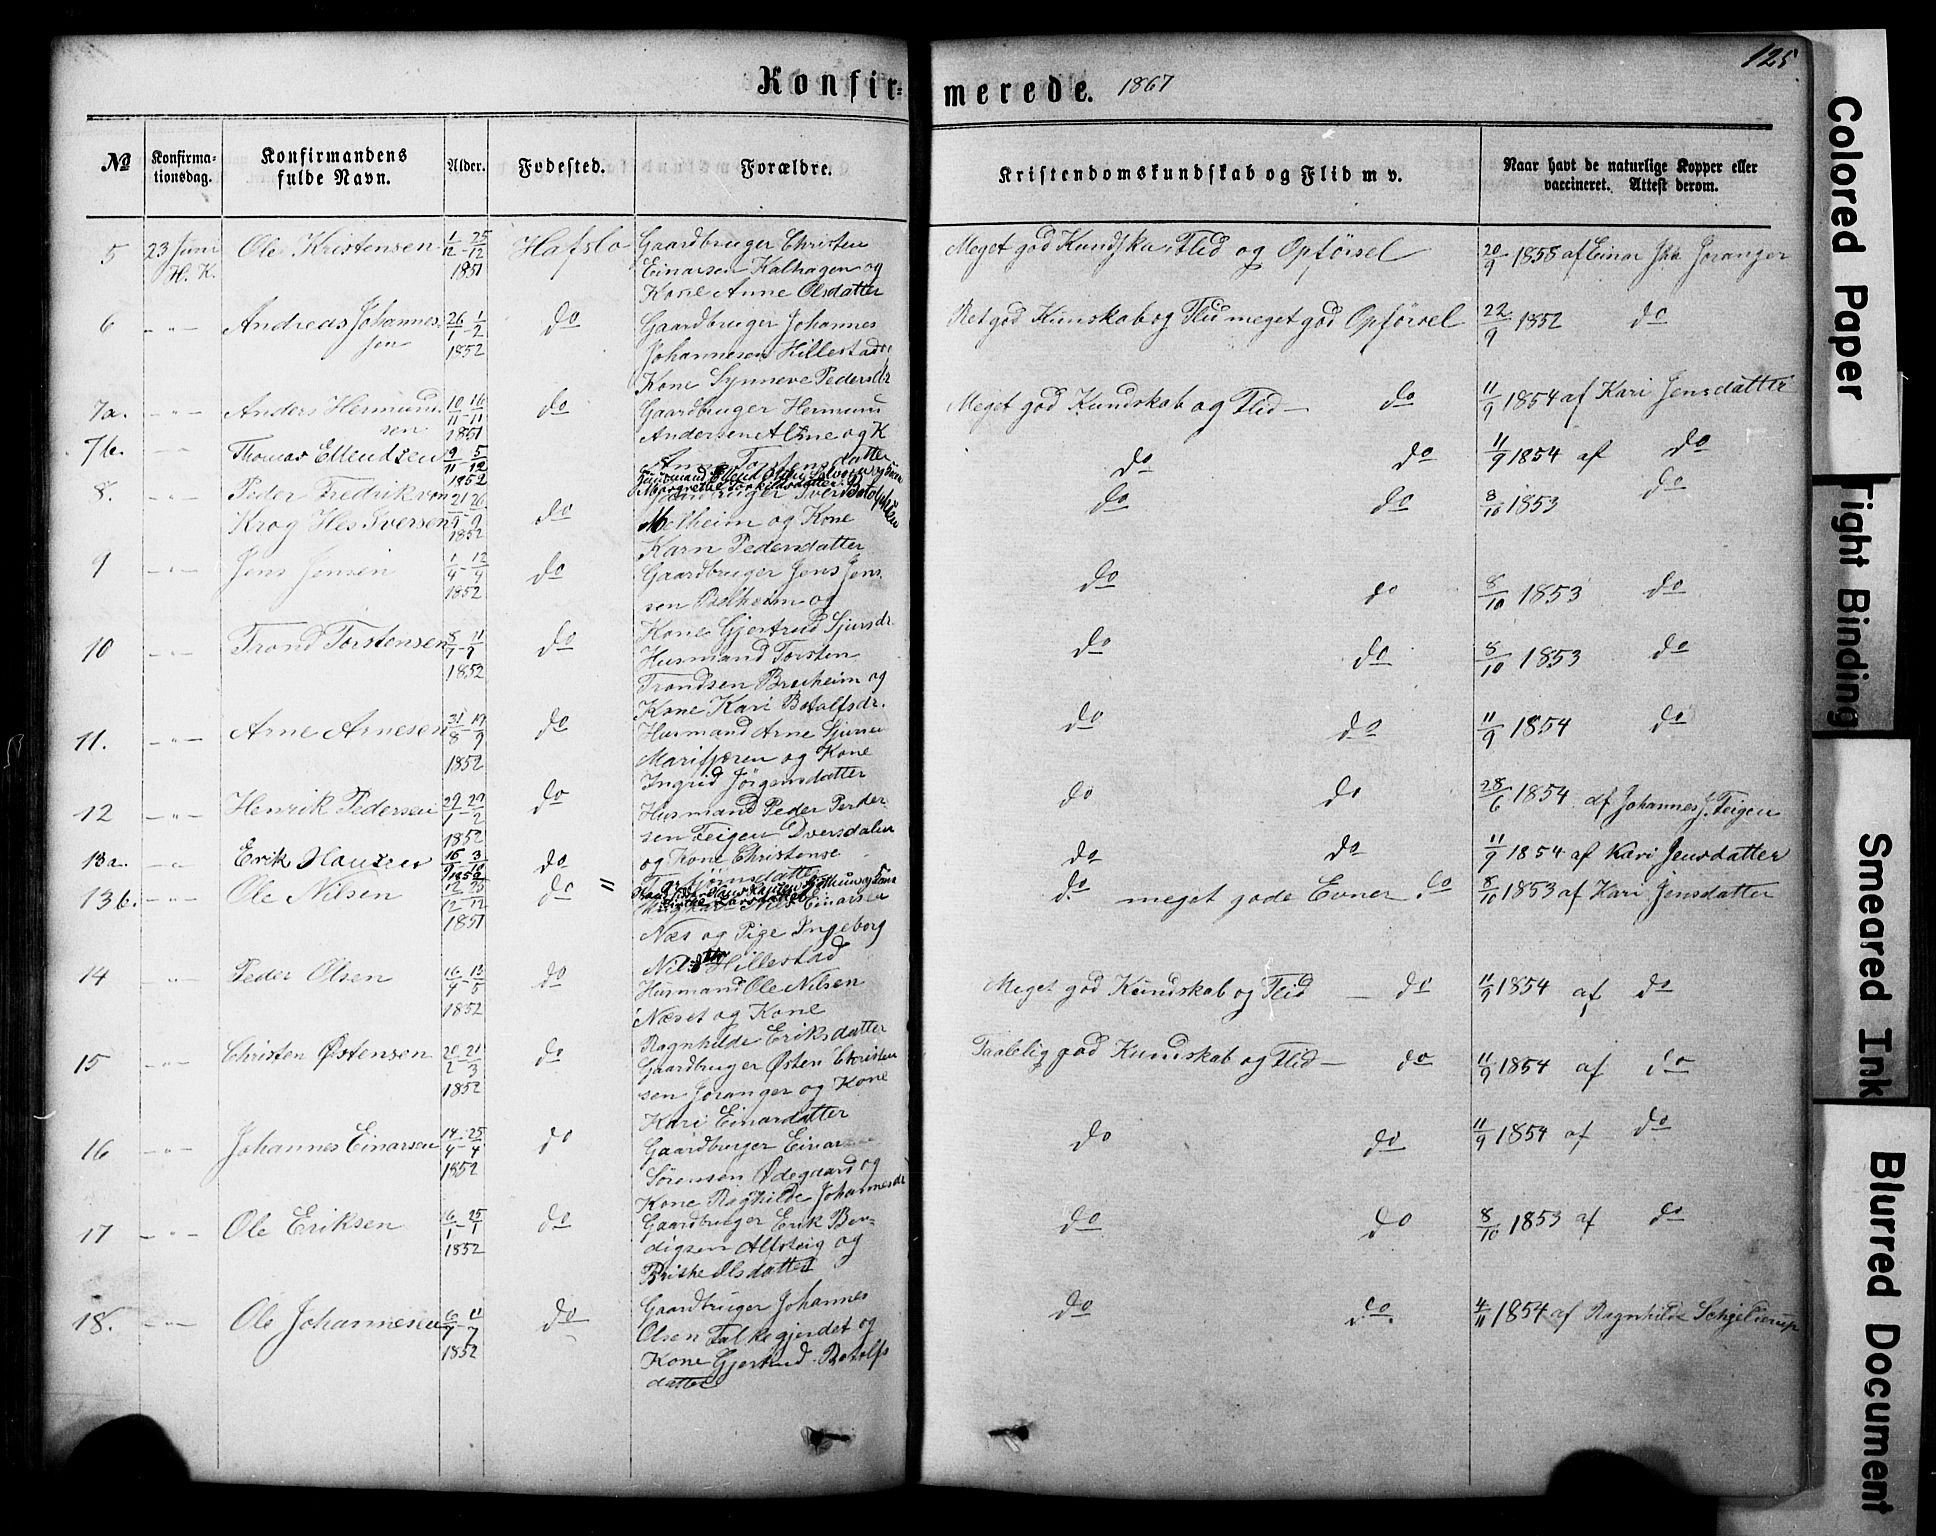 125
Konfirmerede. 1867
№ Konfirmationsdag. Konfirmandens fulde Navn. Alder. Fødested. Forældre. Kristendomskundskab og Flid m v. Naar havt de naturlige Kopper eller vaccineret. Attest derom.
5 23 Juni H. K. Ole Kristensen 1/12 - 25/12 1851 Hafslo Gaardbruger Christen Einarsen Kalhagen og Kone Anne Olsdatter Meget god Kundskab Flid og Opførsel 20/9 1855 af Einar Joranger
6 - " - Andreas Johannessen 26/1 - 1/2 1852 do Gaardbruger Johannes Johannesen Hillestad Kone Synneve Pedersdr Ret god Kunskab og Flid meget god Opførsel 22/9 1852 do
7a. - " - Anders Hermundsen 10/11 - 16/11 1851 do Gaardbruger Hermund Andersen Alme og K Anna Torstensdatter Meget god Kundskab og Flid - do 11/9 1854 af Kari Jensdatter
7b. - " - Thomas Ellendsen 9/11 - 5/12 1852 do do 11/9 1854 af do
8. - " - Peder Fredrik von Krog Hes Iversen 1852 do Gaardbruger Iver Botolphsen Melheim og Kone Karn Pedersdatter do do 8/10 1853 do
9 - " - Jens Jensen 1/4 - 12/4 1852 do Gaardbruger Jens Jenssen Bolheim og Kone Gjertrud Sjursdr. do do 8/10 1853 do
10 - " - Trond Torstensen 1852 do Husmand Torsten Trondsen Breheim og Kone Kari Botolfsdr. do do 8/10 1853 do
11. - " - Arne Arnesen 31/8 - 19/9 1852 do Husmand Arne Sjursen Marifjæren og Kone Ingrid Jørgensdatter do do 11/9 1854 do
12 - " - Henrik Pedersen 29/1 - 29/2 1852 do Husmand Peder Pedersen Teigen Dversdalen og Kone Christense Torbjørnsdatter do do 28/6 1854 af Johannes J. Teigen
13a. - " Erik Hansen do do do 11/9 1854 af Kari Jensdatter
13b. - " - Ole Nilsen 12/12 - 25/12 1851 do " Ungkarl Nils Einarsen Næs og Pige Ingeborg Nilsdtr Hillestad do. meget gode Evner do 8/10 1853 af Kari Jensdatter
14 - " - Peder Olsen 16/4 - 13/5 1852 do Husmand Ole Nilsen Næset og Kone Ragnhilde Eriksdatter Meget god Kundskab og Flid - do 11/9 1854 af do
15 - " - Christen Østensen 20/2 - 21/3 1852 do Gaardbruger Østen Christensen Joranger og Kone Kari Einardatter Taalelig god Kundskab og Flid - do 11/9 1854 af do
16 - " - Johannes Einarsen 14/4 - 25/4 1852 do Gaardbruger Einar Sørensen Ødegaard og Kone Raghilde Johannesdr do do 11/9 1854 af do
17 - " - Ole Eriksen 16/1 - 25/1 1852 do Gaardbruger Erik Bendigsen Alfsteig og Brithe Olsdatter do do 8/10 1853 af do
18. - " - Ole Johannesen 6/7 - 11/7 1852 do Gaardbruger Johannes Olsen Falkegjerdet og Kone Gjertrud Botolfsdatter do do 4/11 1854 af Ragnhilde Schjelderup
Colored Paper
Tight Binding
Smeared Ink
Blurred Document